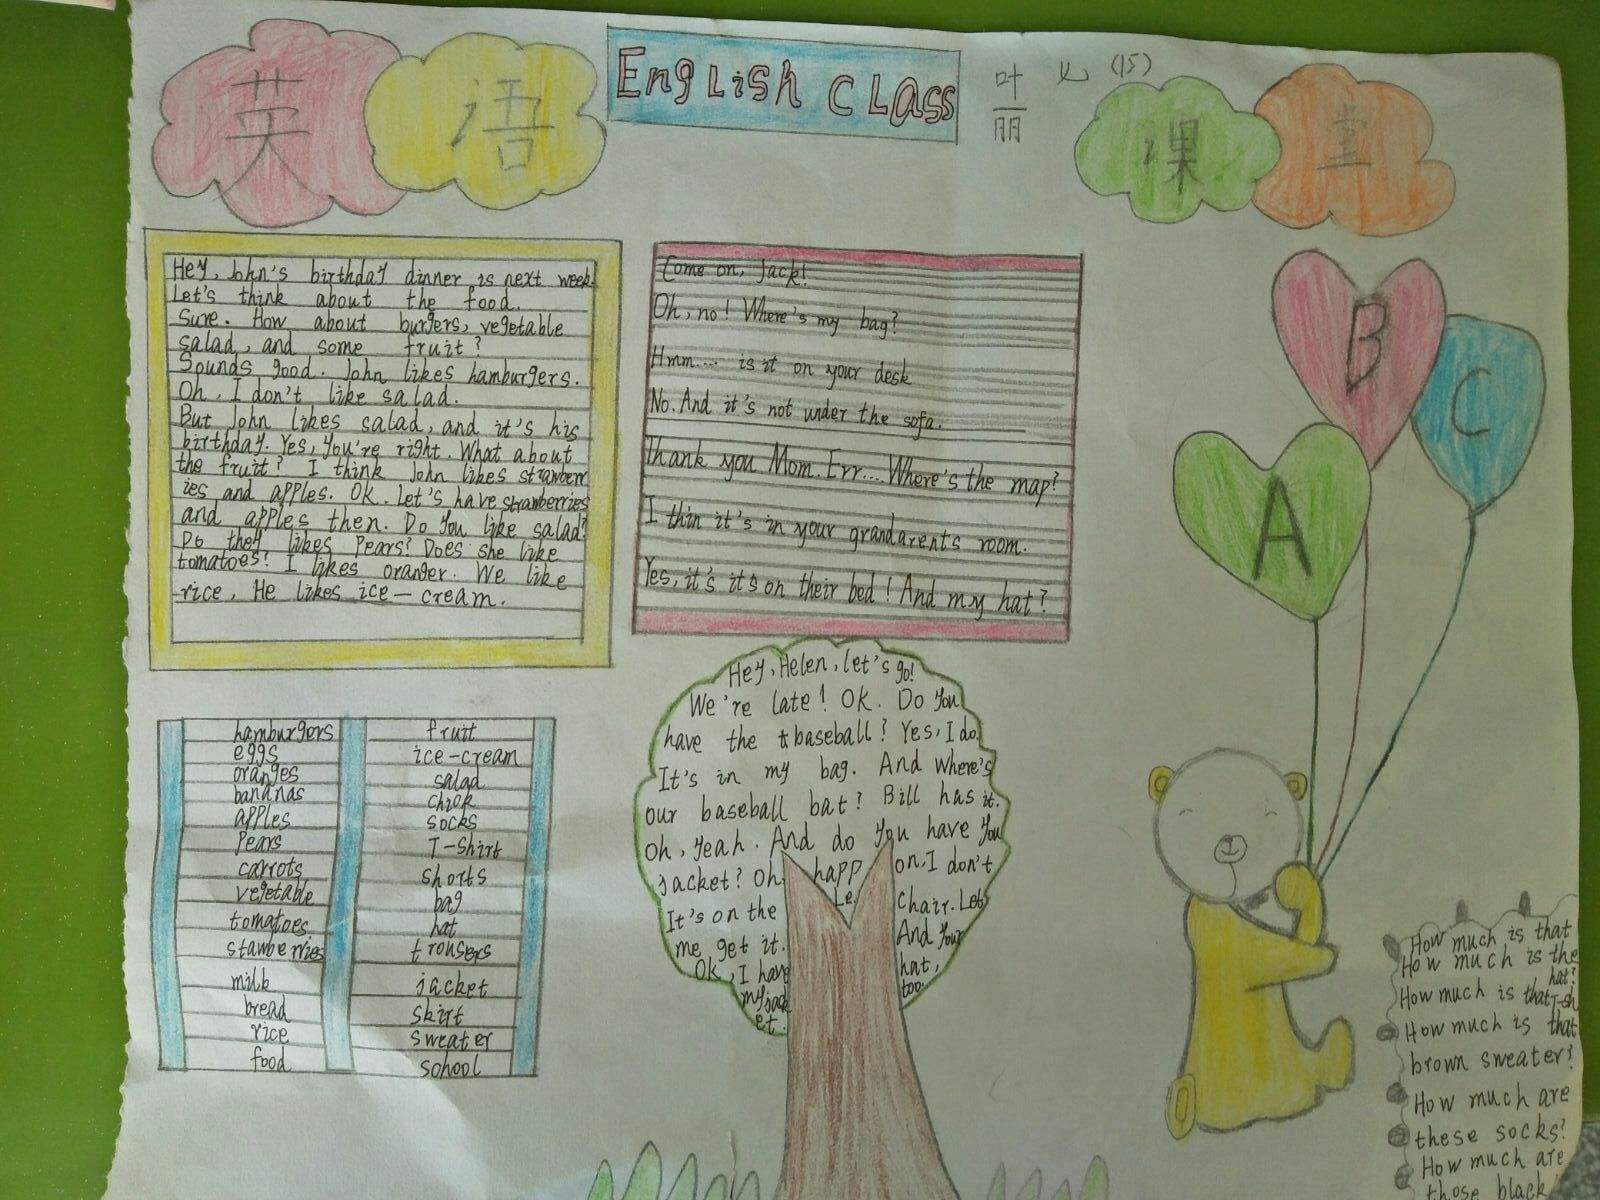 英 语
English Class
叶 丽 (15)
课 堂
Hey, John's birthday dinner is next week.
Let's think about the food.
Sure. How about burgers, vegetable
salad, and some fruit?
Sounds good. John likes hamburgers.
Oh, I don't like salad.
But John likes salad, and it's his
birthday. Yes, you're right. What about
the fruit? I think John likes strawberr
ies and apples. OK. Let's have strawberries
and apples then. Do you like salad?
Do they likes Pears? Does she like
tomatoes? I likes oranger. We like
rice. He likes ice-cream.
Come on, Jack!
Oh, no! Where's my bag?
Hmm.... is it on your desk
No. And it's not under the sofa.
Thank you Mom. Err.... Where's the map?
I thin it's in your grandarents room.
Yes, it's it's on their bed! And my hat?
A
B
C
hamburgers
eggs
oranges
bananas
apples
Pears
carrots
vegetable
tomatoes
stawberries
milk
bread
rice
food
fruit
ice-cream
salad
chick
socks
T-shirt
shorts
bag
hat
trousers
jacket
skirt
sweater
school
Hey, Helen, let's go!
We're late! OK. Do you
have the baseball? Yes, I do.
It's in my bag. And where's
our baseball bat? Bill has it.
Oh, yeah. And do you have you
jacket? Oh happ on, I don't
It's on the Le. chair. Let
me get it. And your
OK, I have hat,
my jack too.
et.
How much is that
How much is the
hat?
How much is that T-sh
How much is that
brown sweater?
How much are
these socks?
How much are
those black